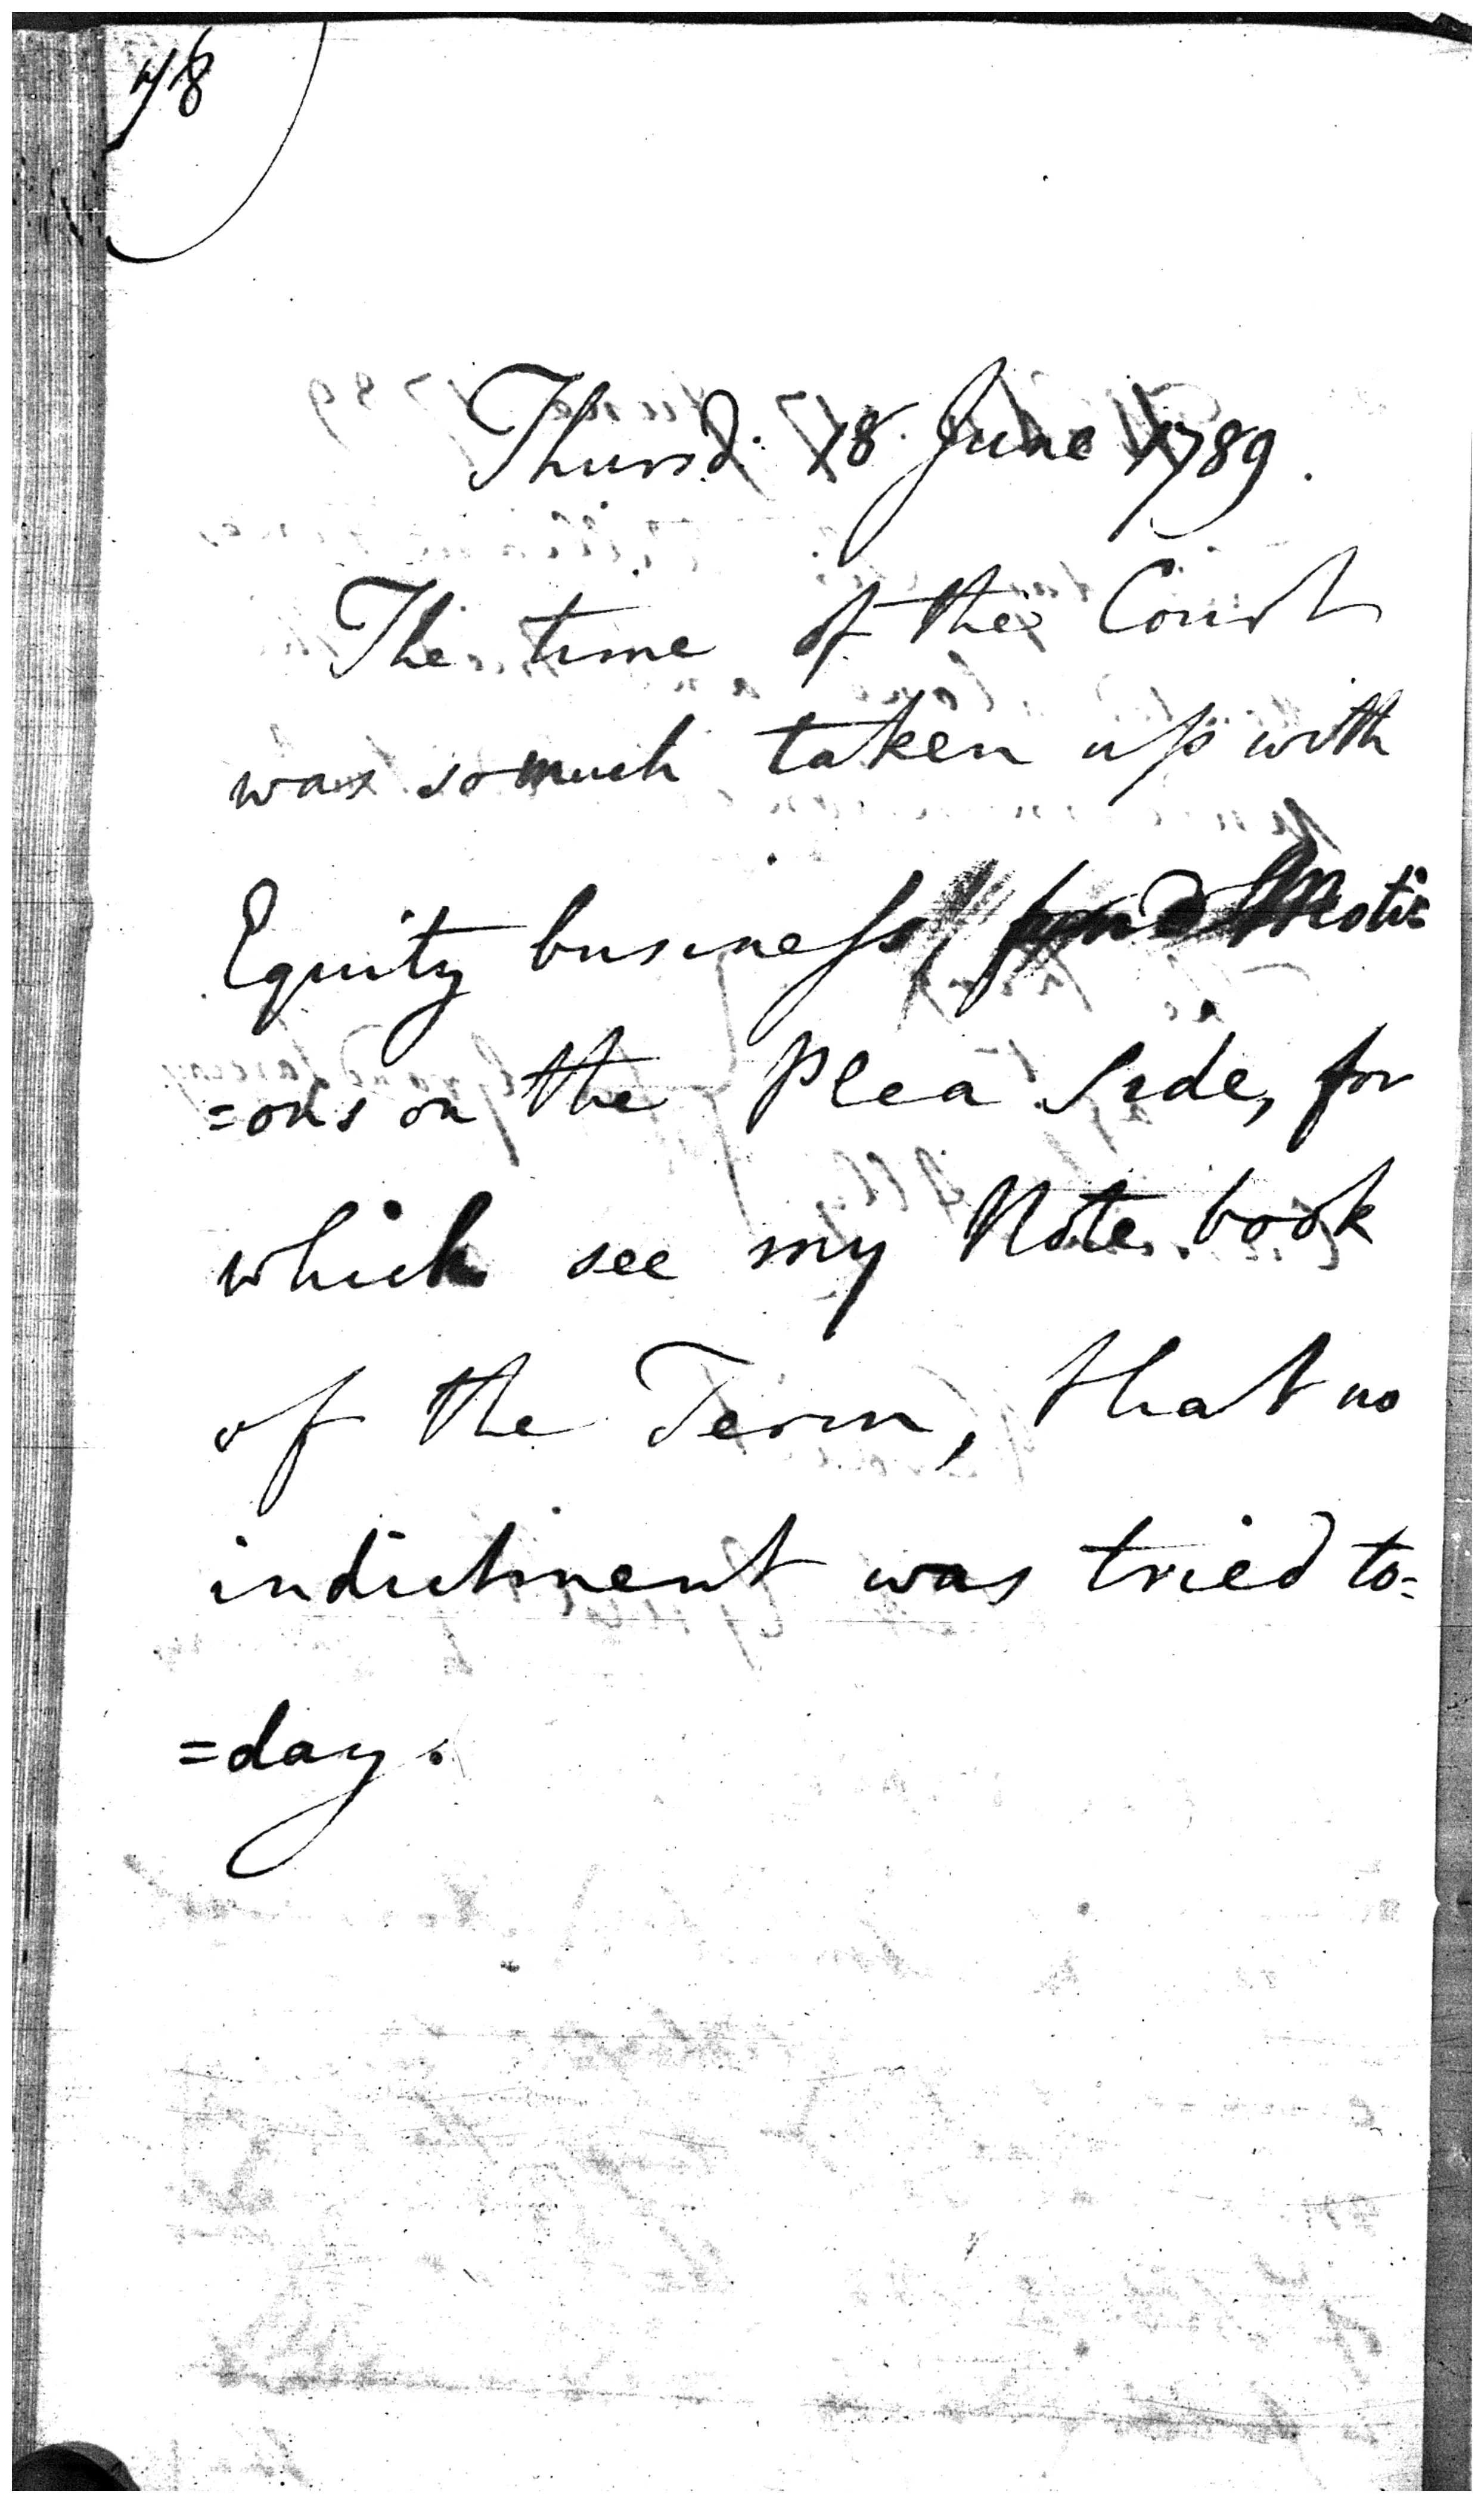 78
Thursd. 18. June 1789.
The time of the Court
was so much taken up with
Equity business, and Moti=
=ons on the Plea Side, for
which see my Note book
of the Term, that no
indictment was tried to=
=day.